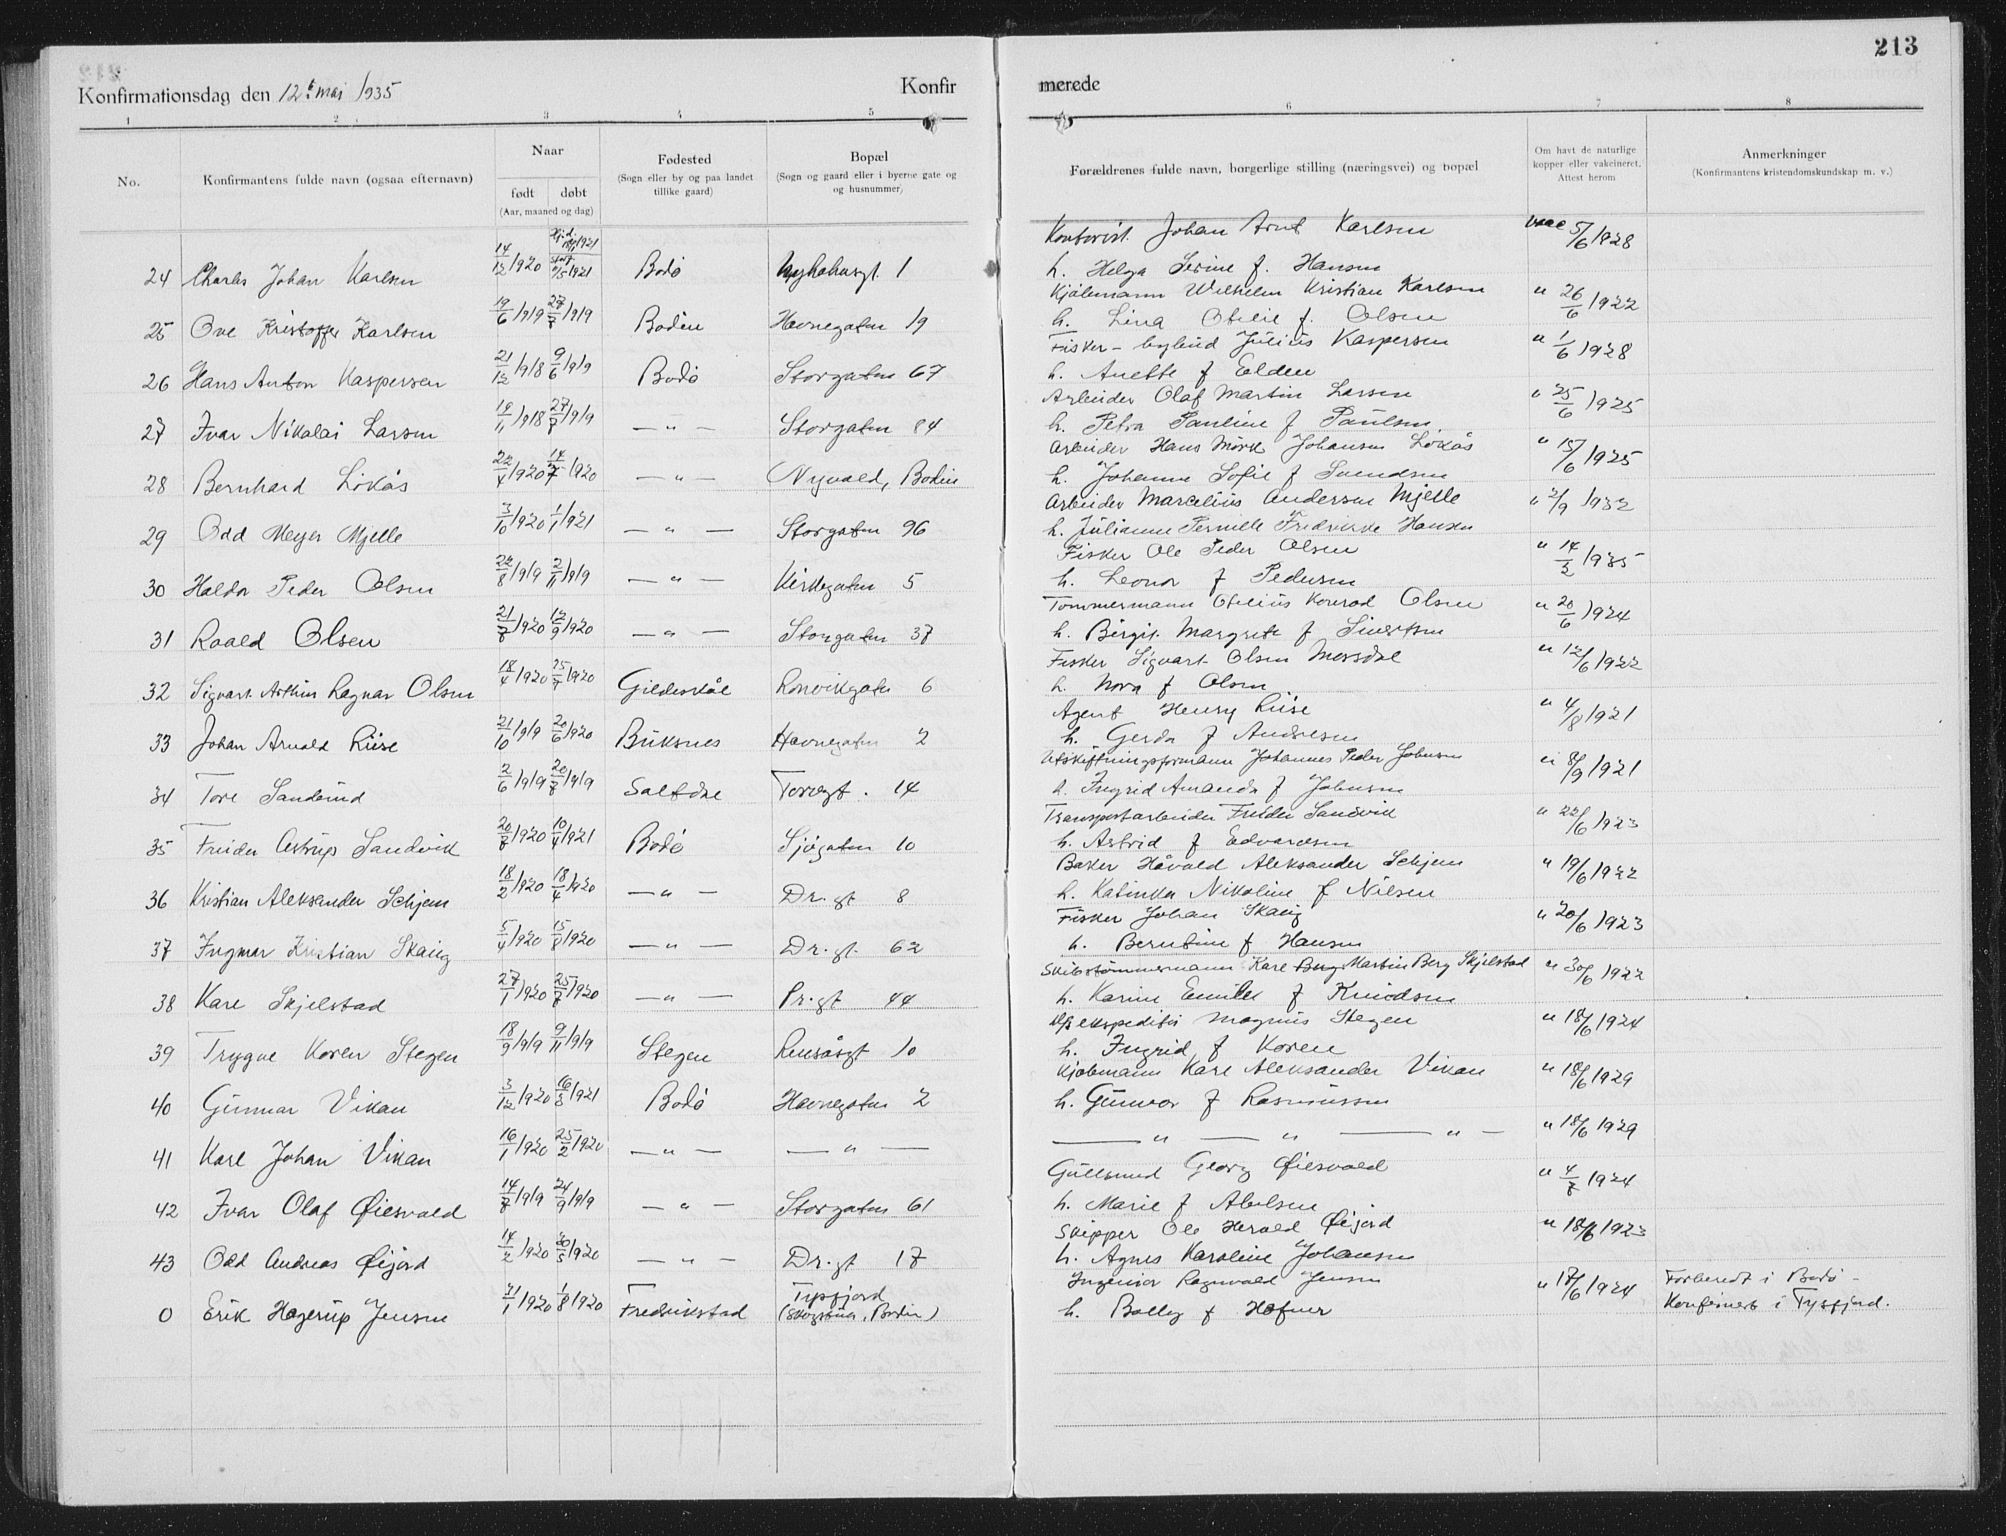 213
Konfirmationsdag den 12t mai 1935
Konfir merede
1 2 3 4 5 6 7 8
No.
Konfirmantens fulde navn (ogsaa efternavn)
Naar
født døbt
(Aar, maaned og dag)
Fødested
(Sogn eller by og paa landet
tillike gaard)
Bopæl
(Sogn og gaard eller i byerne gate og
og husnummer)
Forældrenes fulde navn, borgerlige stilling (næringsvei) og bopæl
Om havt de naturlige
kopper eller vakcineret.
Attest herom
Anmerkninger
(Konfirmantens kristendomskundskap m. v.)
Kontorist Johan Arnt Karlsen vacc 5/6 1928
24 Charles Johan Karlsen 14/12 1920 Bodø Nyholmsgt 1
h. Helga Serine f. Hansen
Kjøbmann Wilhelm Kristian Karlsen " 26/6 1922
25 Ove Kristoffer Karlsen 19/6 1919 27/7 1919 Bodin Havnegaten 19
h. Lina Otelie f. Olsen
Fisker - Julius Kaspersen " 1/6 1928
26 Hans Anton Kaspersen 21/12 1918 9/6 1919 Bodø Storgaten 67
h. Anette f Elden
Arbeider Olaf Martin Larsen " 25/6 1925
27 Ivar Nikolai Larsen 19/11 1918 27/7 1919 — " — Storgaten 84
h. Petra Pauline f Paulsen
Arbeider Hans Mørk Johansen Løkås " 15/6 1925
28 Bernhard Løkås 22/4 1920 14/7 1920 — " — Nyvold, Bodin
h. Johanne Sofie f Svendsen
Arbeider Marcelius Andersen Mjelle " 2/9 1932
29 Odd Meyer Mjelle 3/10 1920 1/1 1921 — " — Storgaten 96
h. Julianne Pernille Fredrikke Hansen
Fisker Ole Peder Olsen " 14/3 1935
30 Haldor Peder Olsen 22/8 1919 2/11 1919 — " — Kirkegaten 5
h. Leonor f Pedersen
Tømmermann Otelius Konrad Olsen " 20/6 1924
31 Roald Olsen 21/7 1920 12/9 1920 — " — Storgaten 37
h. Birgit Margrete f Sivertsen
Fisker Sigvart Olsen Morsdal " 12/6 1922
32 Sigvart Arthur Ragnar Olsen 18/4 1920 25/7 1920 Gildeskål Rønvikgaten 6
h. Nora f Olsen
Agent Henry Riise " 4/8 1921
33 Johan Arnold Riise 21/10 1919 20/6 1920 Buksnes Havnegaten 2
h. Gerda f Andresen
Utskiftningsformann Johannes Peder Johnsen " 8/9 1921
34 Tore Sandmo 2/6 1919 20/7 1919 Saltdal Torvgt. 14
h. Ingrid Amanda f Johnsen
Transportarbeider Frider Sandvik " 22/6 1923
35 Freider Astrup Sandvik 20/8 1920 10/4 1921 Bodø Sjøgaten 10
h. Astrid f Edvardsen
Baker Håvald Aleksander Schjem " 19/6 1922
36 Kristian Aleksander Schjem 18/2 1920 18/4 1920 — " — Dr. gt 8
h. Katinka Nikoline f Nilsen
Fisker Johan Skaug " 20/6 1923
37 Ingmar Kristian Skaug 5/4 1920 15/8 1920 — " — Dr. gt. 62
h. Berntine f Hansen
Skibstømmermann Kare Berg Martin Berg Skjelstad " 30/6 1922
38 Kare Skjelstad 27/1 1920 25/7 1920 — " — Pr. gt 44
h. Karine Emilie f Knudsen
Dpsekspeditør Magnus Stegen " 18/6 1924
39 Trygve Koren Stegen 18/9 1919 9/11 1919 Stegen Rensåsgt 10
h. Ingrid f Koren
Kjøbmann Karl Aleksander Vikan " 18/6 1929
40 Gunnar Vikan 3/12 1920 16/5 1921 Bodø Havnegaten 2
h. Gunvor f Rasmussen
— " — " — " — " 18/6 1929
41 Karl Johan Vikan 16/1 1920 25/2 1920 — " — — " —
Gullsmed Georg Øiesvold " 4/7 1924
42 Ivar Olaf Øiesvold 14/7 1919 24/9 1919 — " — Storgaten 61
h. Marie f Abelsen
Skipper Ole Herald Øijord " 18/6 1923
43 Odd Andreas Øijord 14/2 1920 30/5 1920 — " — Dr. gt 17
h. Agnes Karoline Johansen
Ingeniør Ragnvald Jensen " 17/6 1924 Forberedt i Bodø -
0 Erik Hagerup Jensen 21/1 1920 1/8 1920 Fredrikstad Tysfjord
(Skogstua, Bodin)
h. Bolly f Hofner Konfirmert i Tysfjord.